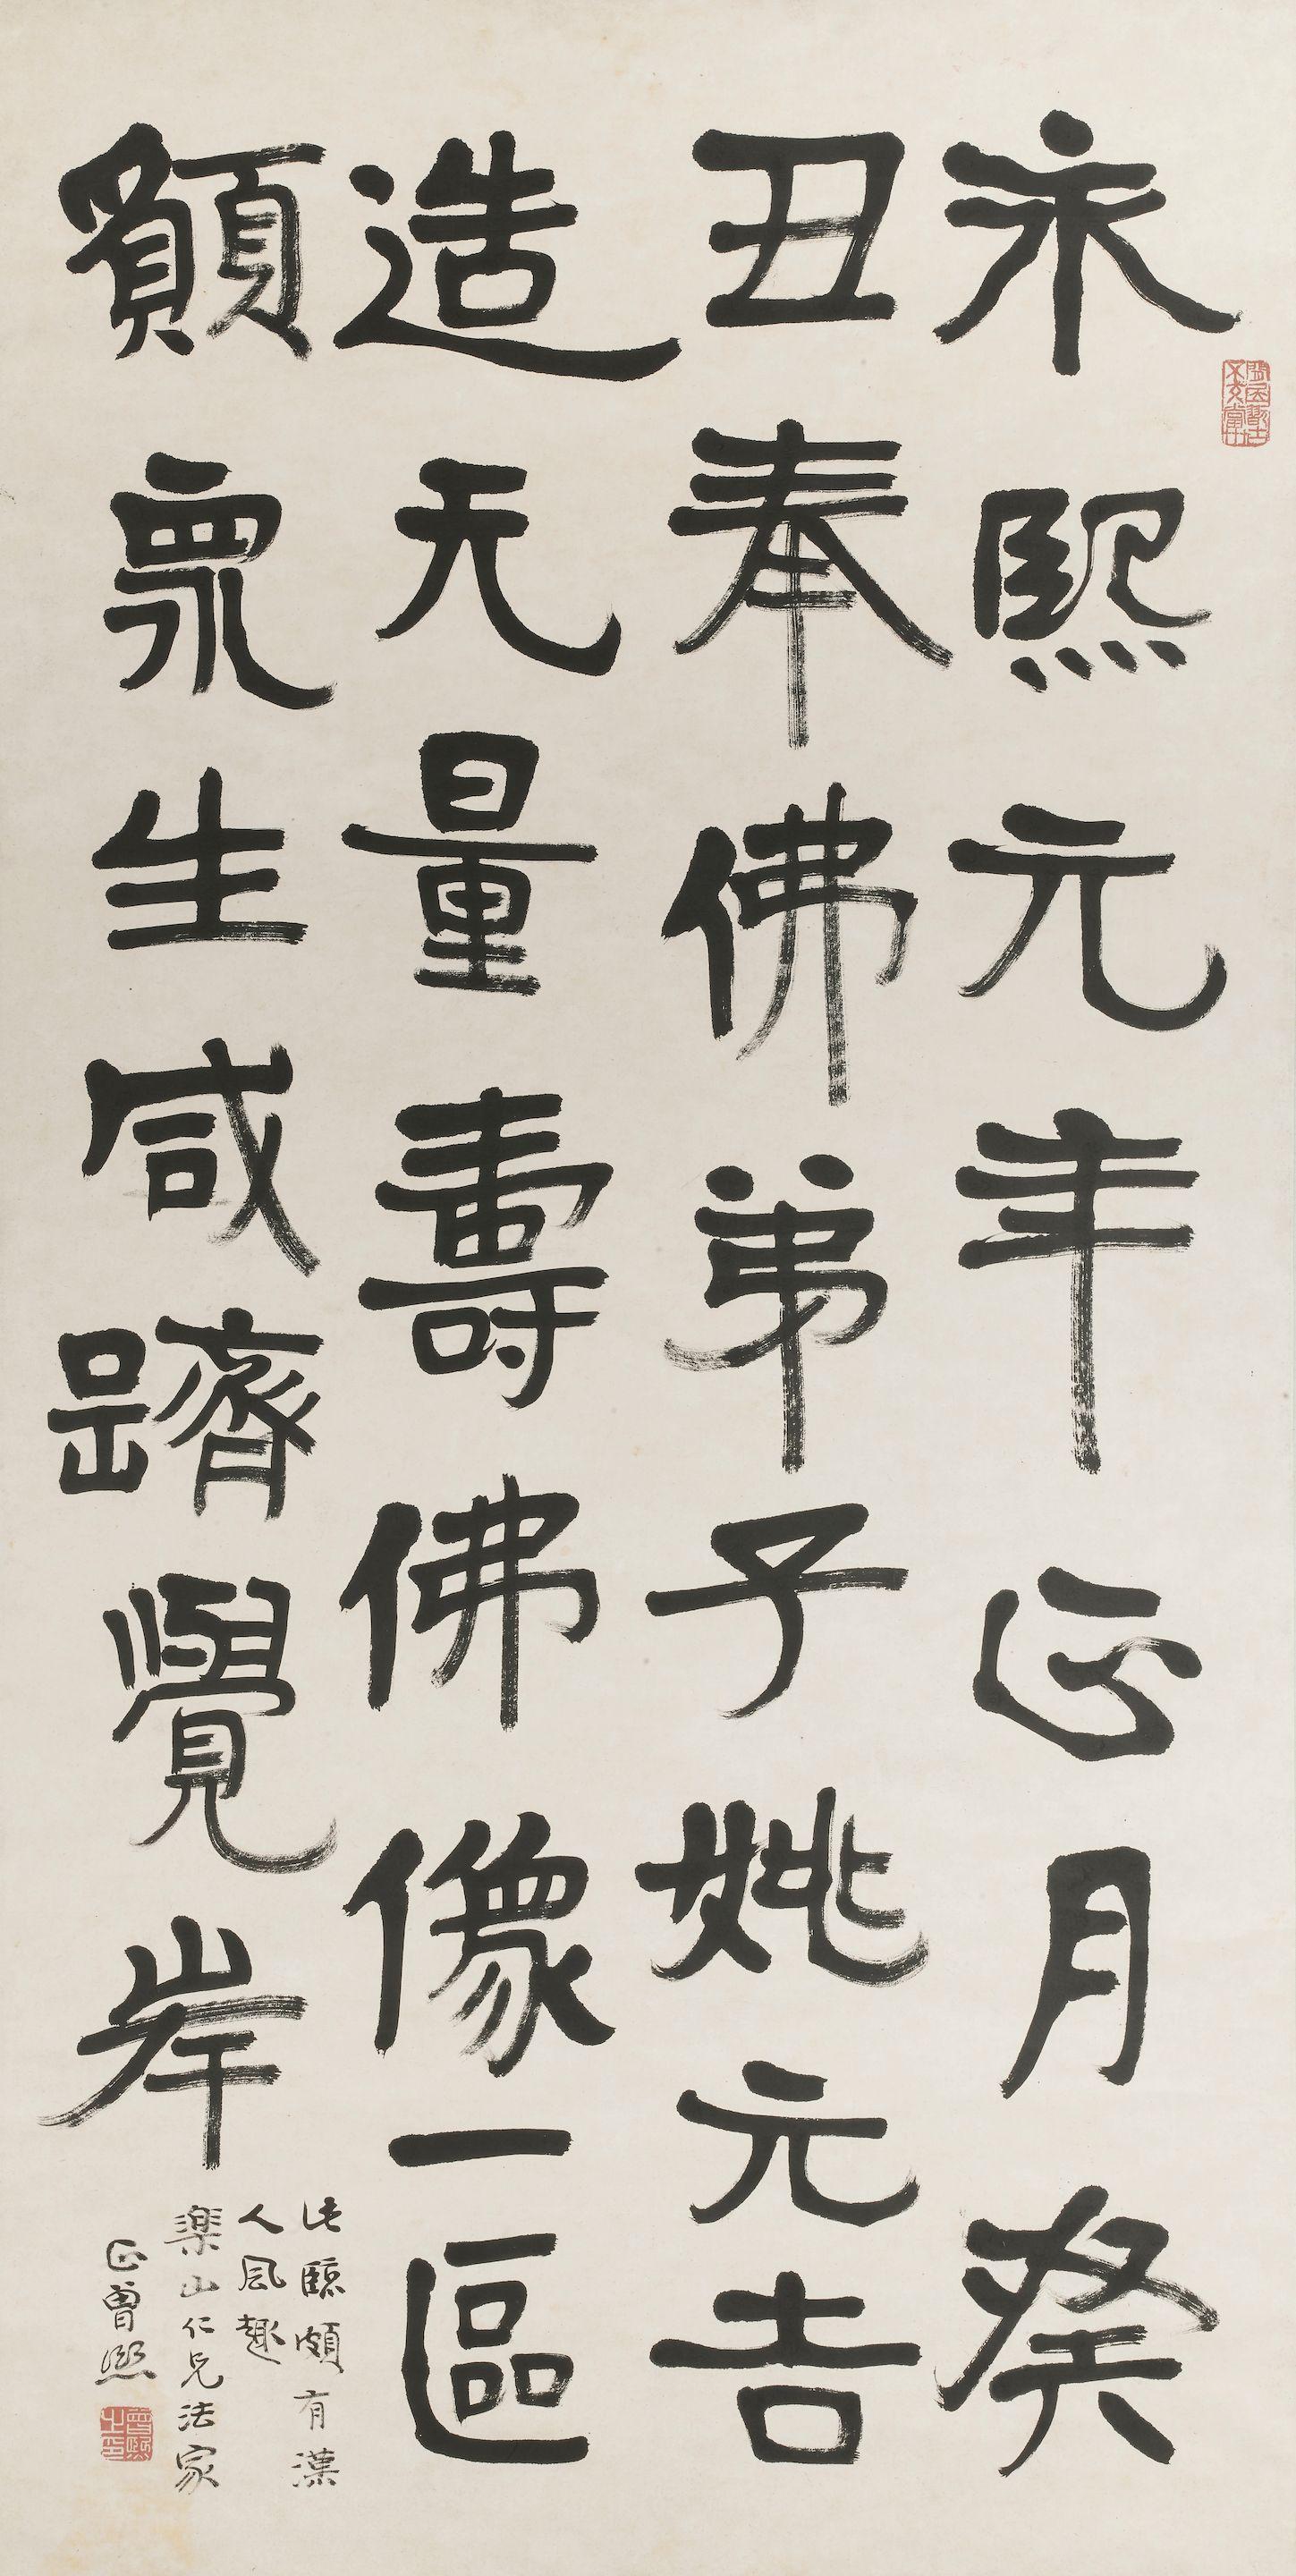 永熙元年正月癸
丑奉佛弟子姚元吉
造无量壽佛像一區
願眾生咸躋覺岸
此臨頗有漢
人風趣
樂山仁兄法家
正曾熙
曾熙之印